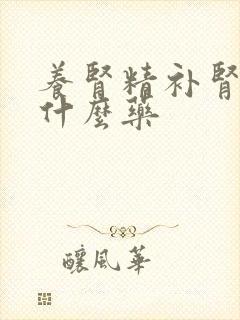 養腎精补腎
什麼藥
釀風華